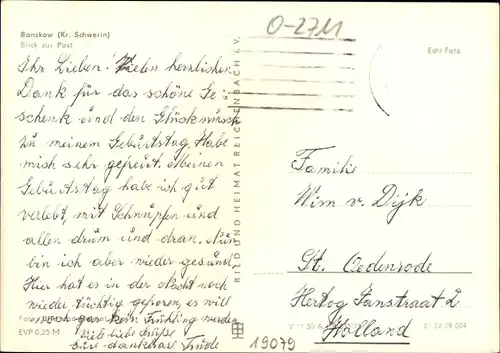 Banzkow (Kr. Schwerin)
Blick zur Post
O-2711
Echt Foto
Ihr Lieben! Vielen herzlichen
Dank für das schöne Ge-
schenk und den Glückwunsch
zu meinem Geburtstag. Habe
mich sehr gefreut. Meinen
Geburtstag habe ich gut
verlebt, mit Schnupfen und
allen drum und dran. Nun
bin ich aber wieder gesund.
Hier hat es in der noch
wieder tüchtig gefroren, es will
gar kein Frühling werden
viele liebe Grüße
eure dankbare Trude
BILD UND HEIMAT REICHENBACH i. V.
Familie
Wim v. Dijk
St. Oedenrode
Hertog Janstraat 2
Holland
EVP 0.25 M
19079
V 11 50 A
01 22 09 024